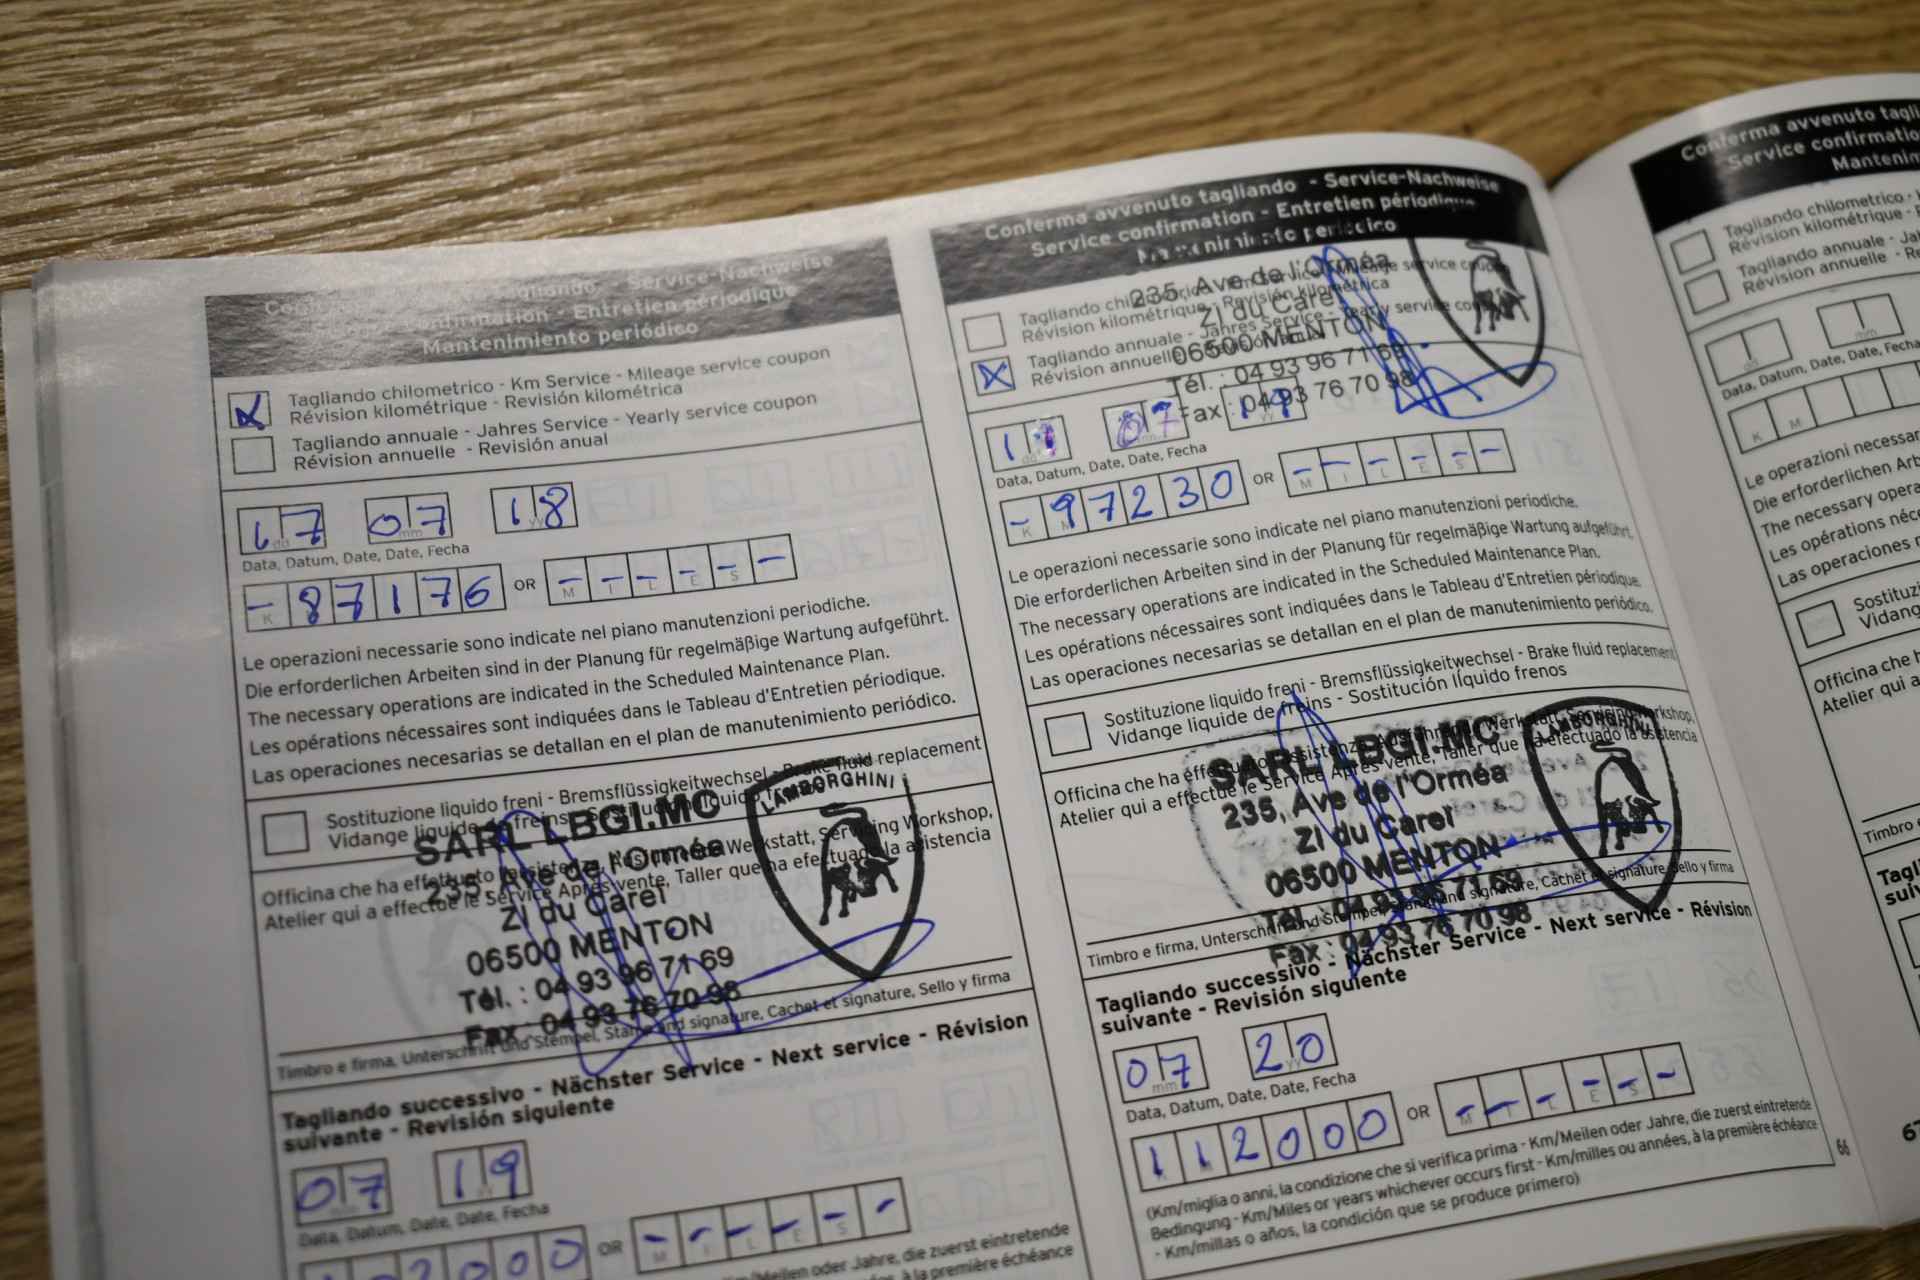 Service-Nachweise
confirmation - Entretien périodique
Mantenimiento periódico
Tagliando chilometrico - Km Service - Mileage service coupon
Révision kilométrique - Revisión kilométrica
Tagliando annuale - Jahres Service - Yearly service coupon
Révision annuelle - Revisión anual
17 07 18
Data, Datum, Date, Date, Fecha
- 87176 OR - - - - - -
Le operazioni necessarie sono indicate nel piano manutenzioni periodiche.
Die erforderlichen Arbeiten sind in der Planung für regelmäßige Wartung aufgeführt.
The necessary operations are indicated in the Scheduled Maintenance Plan.
Les opérations nécessaires sont indiquées dans le Tableau d'Entretien périodique.
Las operaciones necesarias se detallan en el plan de manutenimiento periódico.
Sostituzione liquido freni - Bremsflüssigkeitwechsel - Brake fluid replacement
Vidange liquide de freins - Sostitución líquido frenos
Officina che ha effettuato l'assistenza, Werkstatt, Servicing Workshop,
Atelier qui a effectué le Service Après-vente, Taller que ha efectuado la asistencia
SARL LBGI.MC
235, Ave de l'Orméa
ZI du Careï
06500 MENTON
Tél. : 04 93 96 71 69
Fax : 04 93 76 70 98
LAMBORGHINI
Timbro e firma, Unterschrift und Stempel, Stamp and signature, Cachet et signature, Sello y firma
Tagliando successivo - Nächster Service - Next service - Révision
suivante - Revisión siguiente
07 19
Data, Datum, Date, Date, Fecha
102000 OR - - - - - -
Km/Meilen oder Jahre, die zuerst eintretende
à la première échéance
Conferma avvenuto tagliando - Service-Nachweise
Service confirmation - Entretien périodique
Mantenimiento periódico
235, Ave de l'Orméa
ZI du Careï
06500 MENTON
Tél. : 04 93 96 71 69
Fax : 04 93 76 70 98
Tagliando chilometrico - Km Service - Mileage service coupon
Révision kilométrique - Revisión kilométrica
Tagliando annuale - Jahres Service - Yearly service coupon
Révision annuelle
17 07 19
Data, Datum, Date, Date, Fecha
- 97230 OR - - - - - -
Le operazioni necessarie sono indicate nel piano manutenzioni periodiche.
Die erforderlichen Arbeiten sind in der Planung für regelmäßige Wartung aufgeführt.
The necessary operations are indicated in the Scheduled Maintenance Plan.
Les opérations nécessaires sont indiquées dans le Tableau d'Entretien périodique.
Las operaciones necesarias se detallan en el plan de manutenimiento periódico.
Sostituzione liquido freni - Bremsflüssigkeitwechsel - Brake fluid replacement
Vidange liquide de freins - Sostitución líquido frenos
Officina che ha effettuato l'assistenza, Werkstatt, Servicing Workshop,
Atelier qui a effectué le Service Après-vente, Taller que ha efectuado la asistencia
SARL LBGI.MC
235, Ave de l'Orméa
ZI du Careï
06500 MENTON
Tél. : 04 93 96 71 69
Fax : 04 93 76 70 98
LAMBORGHINI
Timbro e firma, Unterschrift und Stempel, Stamp and signature, Cachet et signature, Sello y firma
Tagliando successivo - Nächster Service - Next service - Révision
suivante - Revisión siguiente
07 20
Data, Datum, Date, Date, Fecha
112000 OR - - - - - -
(Km/miglia o anni, la condizione che si verifica prima - Km/Meilen oder Jahre, die zuerst eintretende
Bedingung - Km/Miles or years whichever occurs first - Km/milles ou années, à la première échéance
- Km/millas o años, la condición que se produce primero)
66
Conferma avvenuto
Service
Tagliando chilometrico
Révision kilométrique
Tagliando annuale
Révision annuelle
Data, Datum, Date, Date, Fecha
Le operazioni
Die erforderlichen
The necessary
Les opérations
Las operaciones
Vidange
Officina che
Atelier qui a
Timbro